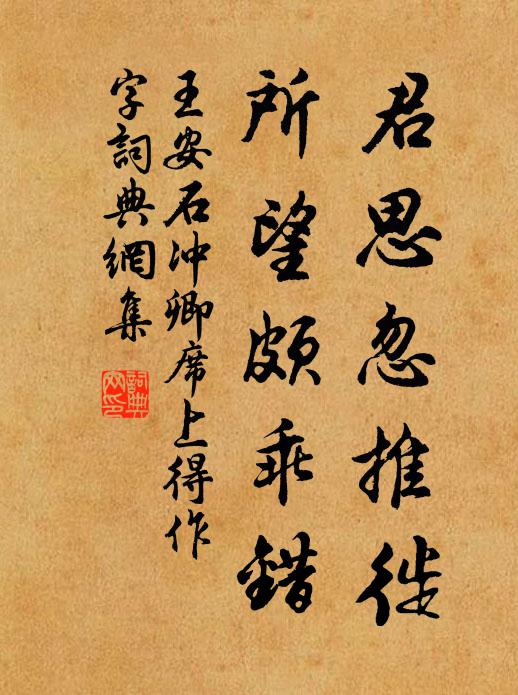 君恩忽推徙
所望頗乖錯
王安石冲卿席上得作
字詞典網集
詞典
网印